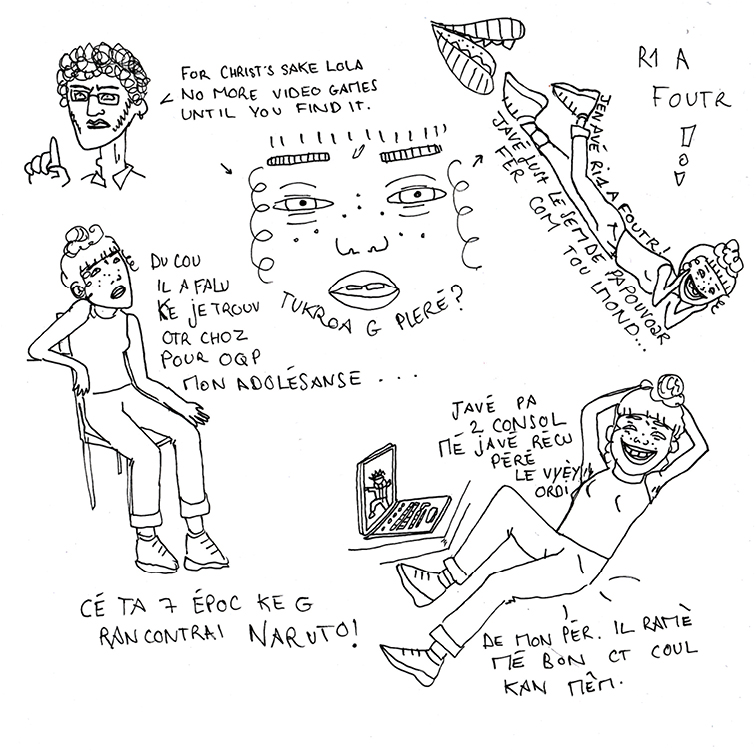 FOR CHRIST'S SAKE LOLA
NO MORE VIDEO GAMES
UNTIL YOU FIND IT.
TUKROA G PLERÉ?
R1 A
FOUTR
!
JEN AVÉ R1 A FOUTR!
JAVÉ JUST LE SEM DE PA POUVOAR
FÈR COM TOU LMOND...
DU COU
IL A FALU
KE JE TROUV
OTR CHOZ
POUR OQP
MON ADOLÉSANSE ...
JAVÉ PA
2 CONSOL
MÉ JAVÉ RÉCU
PÉRÉ
LE VYÈY
ORDI
DE MON PÈR. IL RAMÈ
MÉ BON CT COUL
KAN MÊM.
CÉ TA 7 ÉPOC KE G
RANCONTRAI NARUTO!